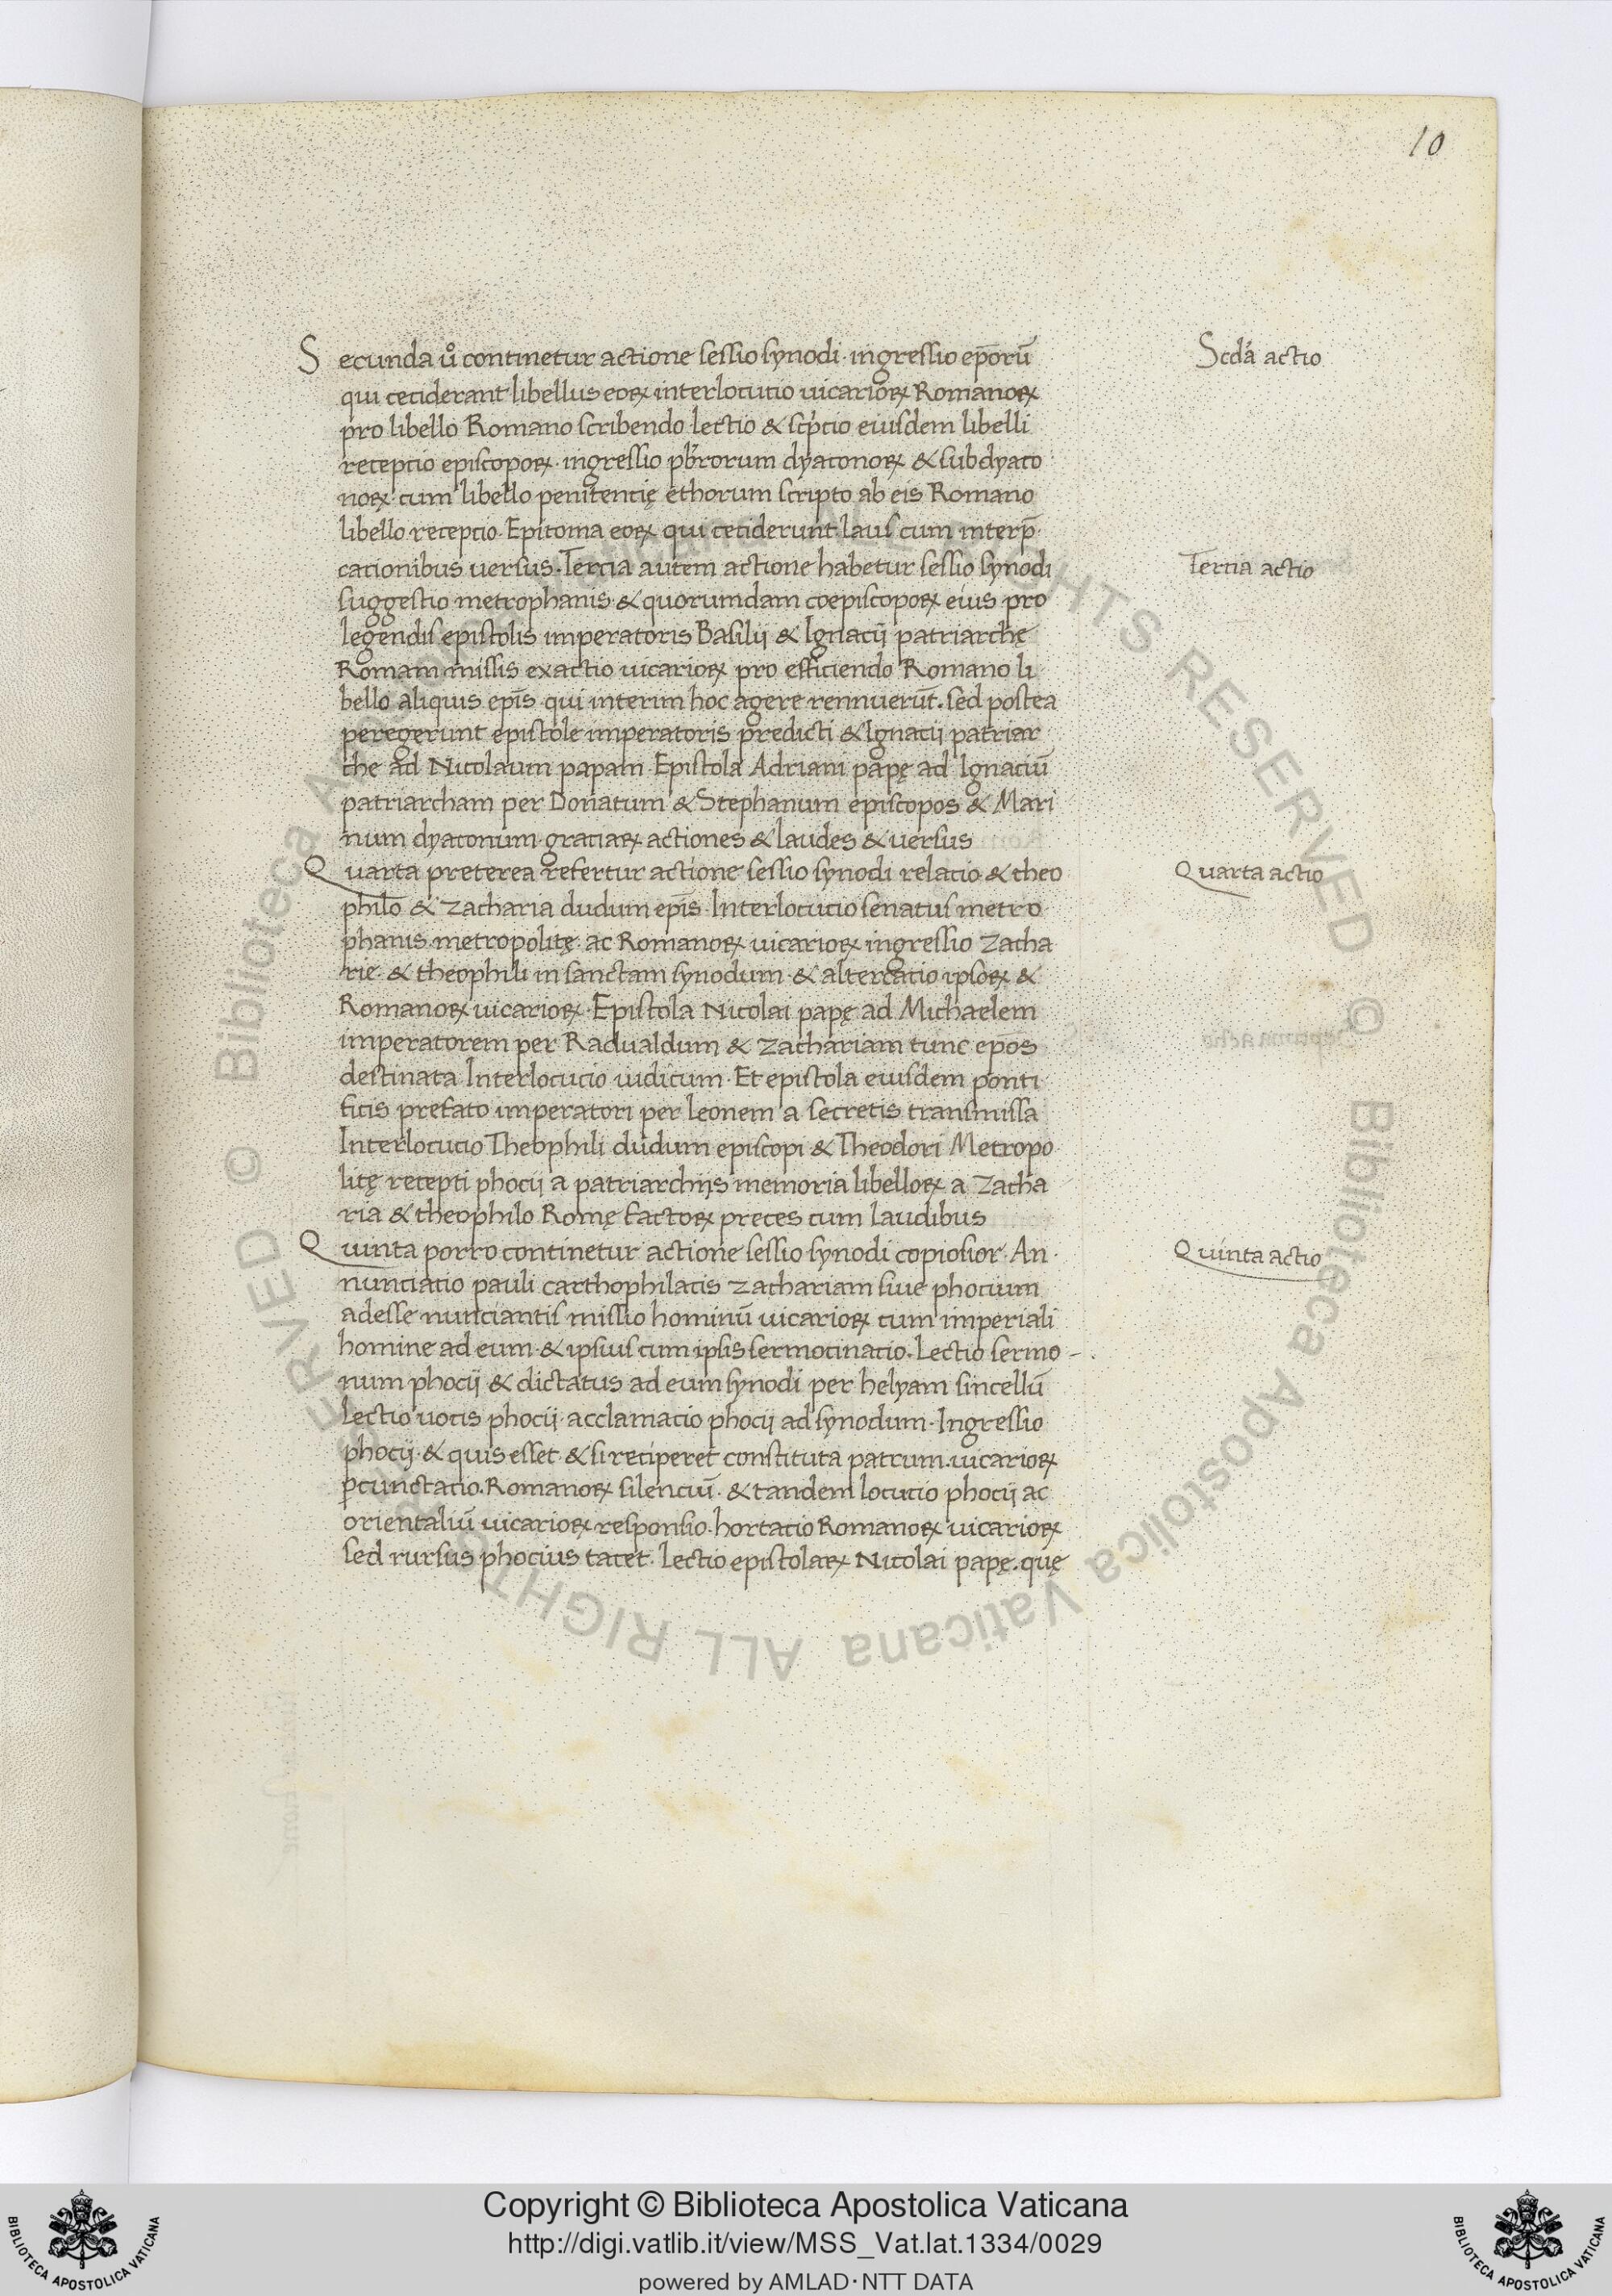 10
Secunda uͦ continetur actione sessio synodi · ingressio ep̄orū
qui ceciderant libellus eoꝝ interlocutio uicarioꝝ Romanoꝝ
pro libello Romano scribendo lectio & scp̍cio eiusdem libelli
recepcio episcopoꝝ · ingressio pb̄rorum dyaconoꝝ & subdyaco
noꝝ cum libello penitencię ethorum scripto ab eis Romano
libello recepcio · Epitoma eoꝝ qui ceciderunt laus cum interp̄
cationibus uersus · Tercia autem actione habetur sessio synodi
suggestio metrophanis & quorumdam coepiscopoꝝ eius pro
legendis epistolis imperatoris Basilij & Ignacij patriarchę
Romam missis exactio uicarioꝝ pro efficiendo Romano li
bello aliquis ep̄is qui interim hoc agere rennuerūt. sed postea
peregerunt epistole imperatoris predicti & Ignacij patriar
che ad Nicolaum papam Epistola Adriani papę ad Ignaciū
patriarcham per Donatum & Stephanum episcopos & Mari
num dyaconum · graciaꝝ actiones & laudes & uersus
Quarta preterea refertur actione sessio synodi relacio & theo
philo & zacharia dudum ep̄is · Interlocucio senatus metro
phanis metropolitę ac Romanoꝝ uicarioꝝ ingressio zacha
rie & theophili in sanctam synodum & altercatio ipsoꝝ &
Romanoꝝ uicarioꝝ · Epistola Nicolai papę ad Michaelem
imperatorem per Radualdum & zachariam tunc ep̄os
destinata Interlocucio iudicum · Et epistola eiusdem ponti
ficis prefato imperatori per leonem a secretis transmissa
Interlocucio Theophili dudum episcopi & Theodori Metropo
litę recepti phocij a patriarchijs memoria libelloꝝ a zacha
ria & theophilo Romę factoꝝ preces cum laudibus
Quinta porro continetur actione sessio synodi copiosior · An ·
nunciatio pauli carthophilacis zachariam siue phocium
adesse nunciantis missio hominū uicarioꝝ cum imperiali
homine ad eum & ipsius cum ipsis sermocinacio. Lectio sermo -
num phocij & dictatus ad eum synodi per helyam sincellū
Lectio uocis phocij · acclamacio phocij ad synodum · Ingressio
phocij · & quis esset & si reciperet constituta patrum. uicarioꝝ
ꝑcunctacio. Romanoꝝ silenciū · & tandem locucio phocij ac
orientaliū uicarioꝝ responsio. hortacio Romanoꝝ uicarioꝝ
sed rursus phocius tacet · Lectio epistolaꝝ Nicolai papę. quę
Scdȧ actio
Tercia actio
Quarta actio
Quinta actio
© Biblioteca Apostolica Vaticana ALL RIGHTS RESERVED
© Biblioteca Apostolica Vaticana ALL RIGHTS RESERVED
Copyright © Biblioteca Apostolica Vaticana
http://digi.vatlib.it/view/MSS_Vat.lat.1334/0029
powered by AMLAD·NTT DATA
BIBLIOTECA APOSTOLICA VATICANA
BIBLIOTECA APOSTOLICA VATICANA